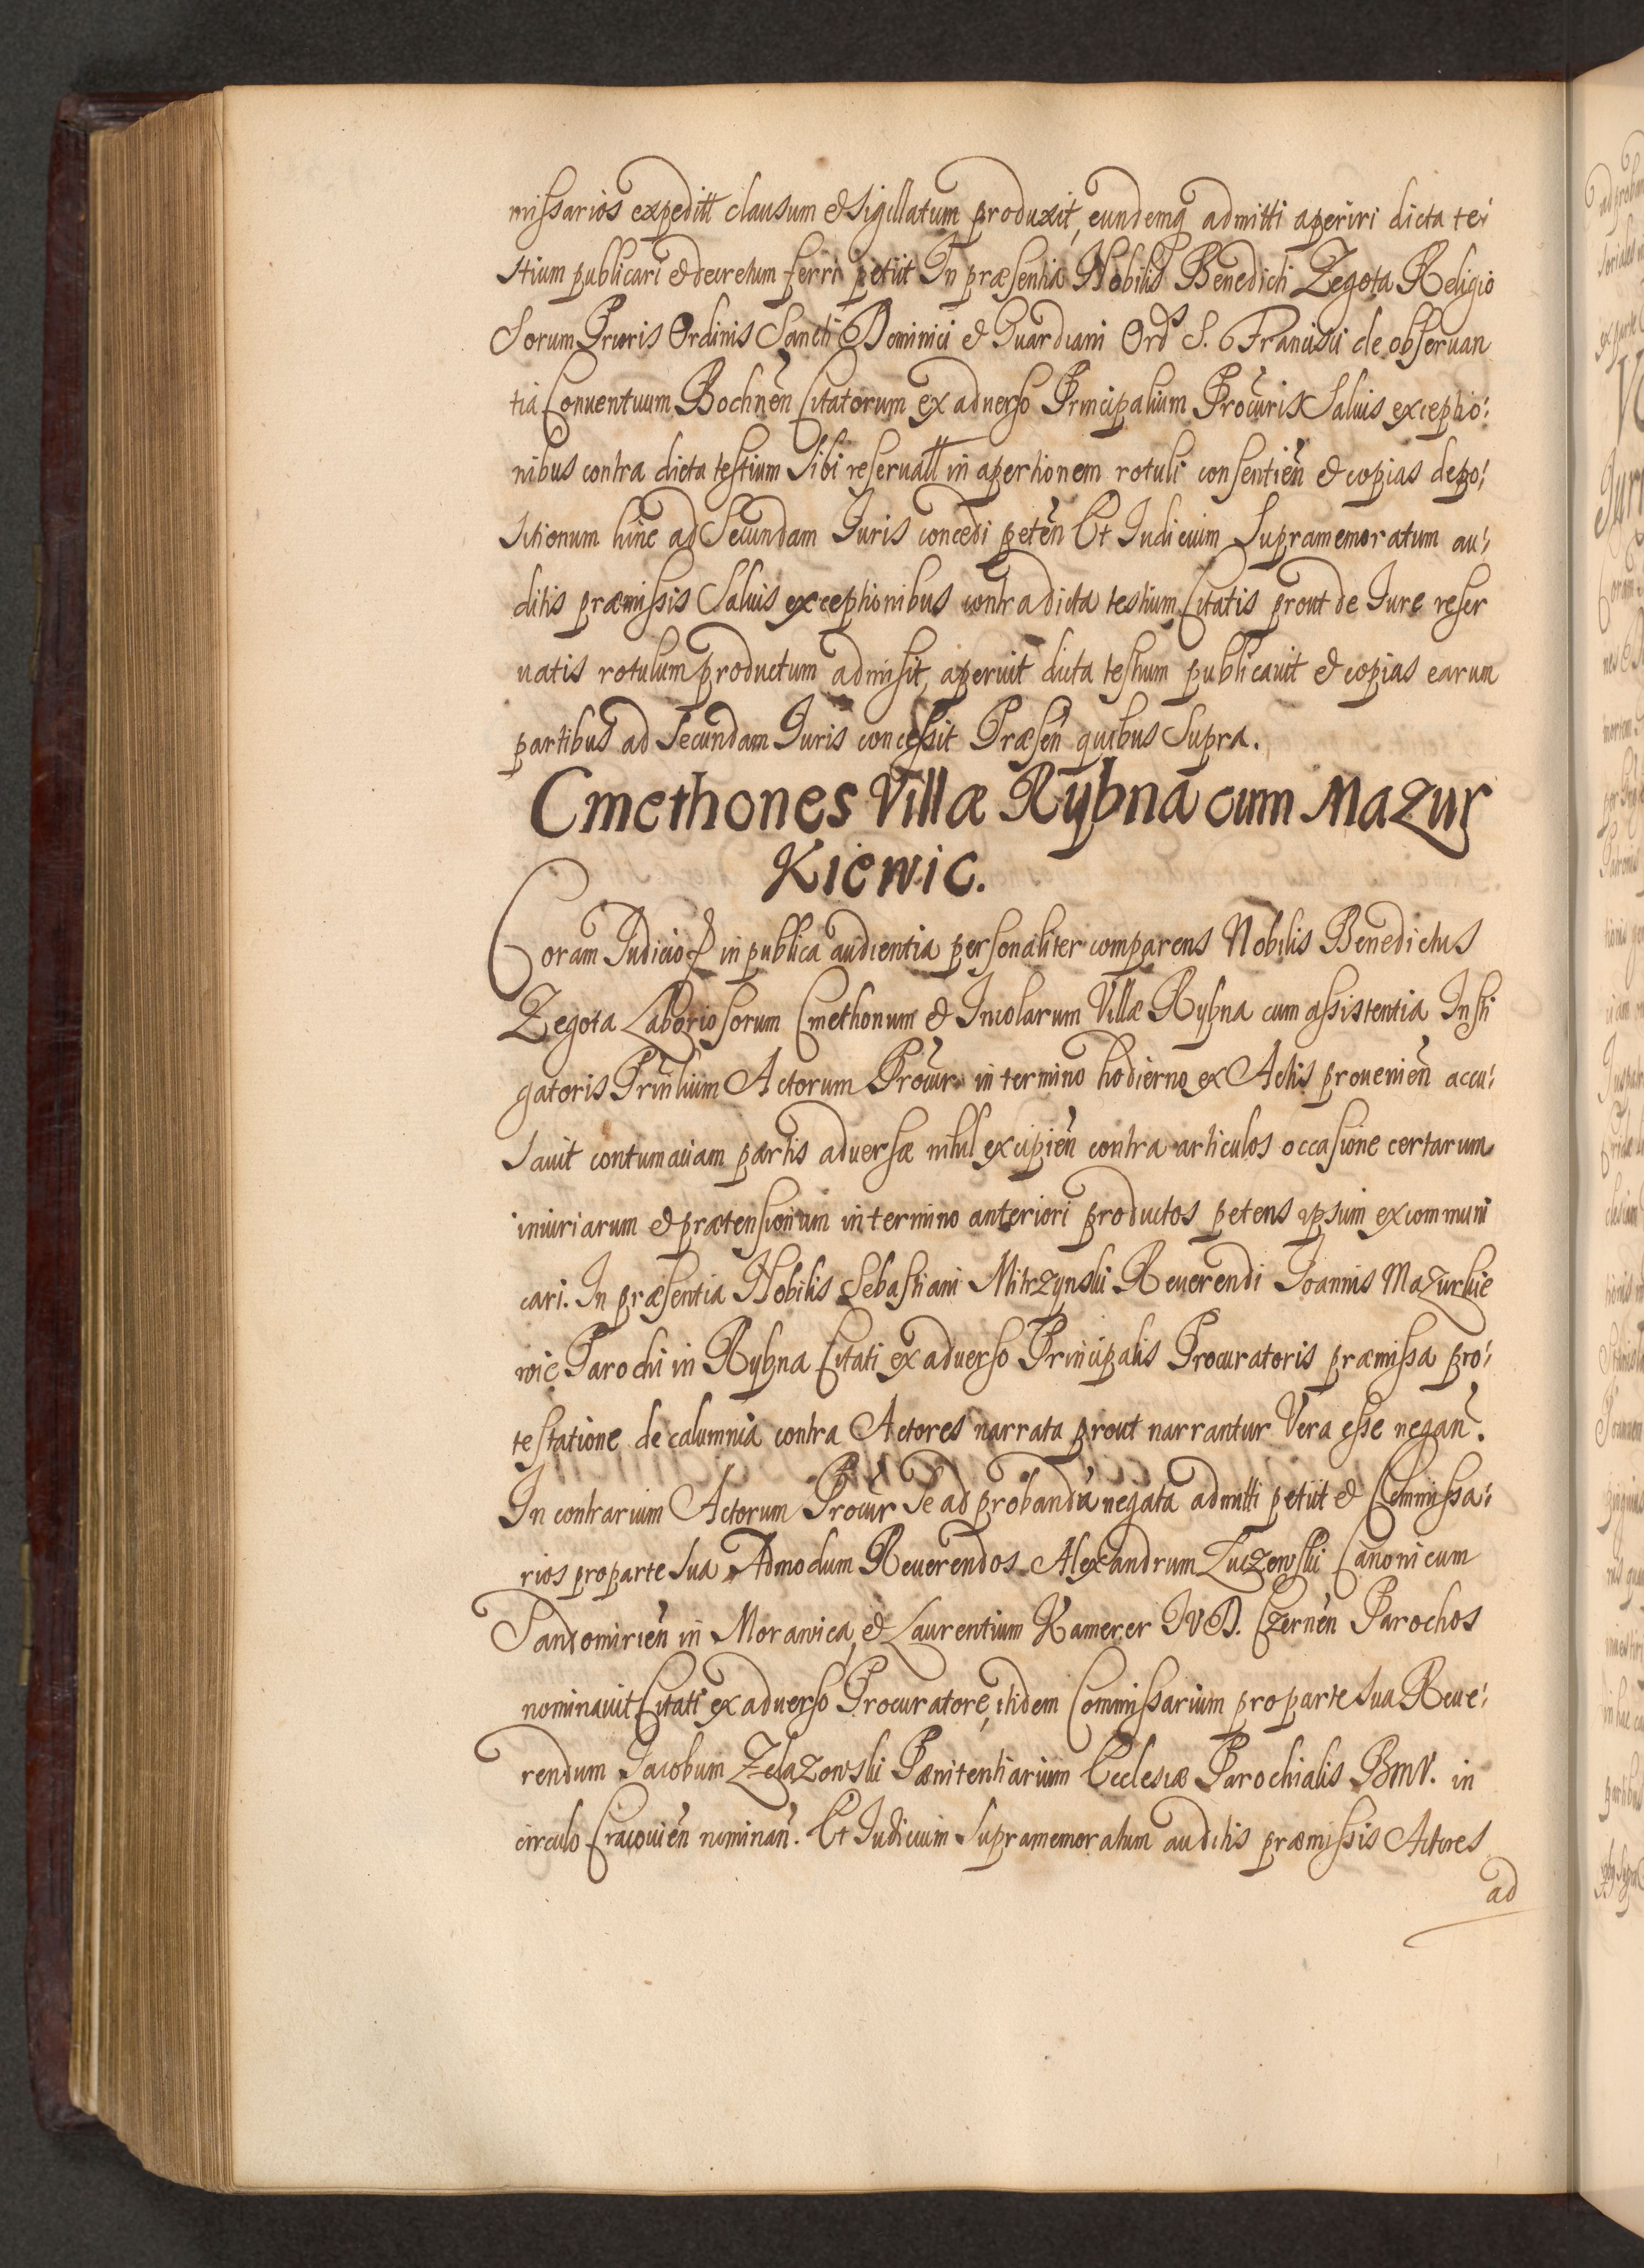 missarios expeditt clausum et sigillatum produxit, eundemq admitti aperiri dicta te
stium publicari et decretum ferri petiit In præsentia Nobilis Benedicti Zegota Religio
Sorum Prioris Ordinis Sancti Dominici et Guardiani Ordis S. Francisci de obseruan
tia Conuentuum Bochnen Citatorum ex aduerso Principalium Procuris Saluis exceptio:
nibus contra dicta testium Sibi reseruatt in apertionem rotuli consentien et copias depo:
sitionum hinc ad Secundam Juris concedi peten Et Judicium Supramemoratum au:
ditis præmissis Saluis exceptionibus contra dicta testium Citatis prout de Jure reser
uatis rotulum productum admisit, aperuit dicta testium publicauit et copias earum
partibus ad Secundam Juris concessit Præsen quibus Supra.
Cmethones Villæ Rybna cum Mazur
Kiewic.
Coram Judicio in publica audientia personaliter comparens Nobilis Benedictus
Zegota Laboriosorum Cmethonum et Incolarum Villæ Rybna cum assistentia Insti
gatoris Prinlium Actorum Procur in termino hodierno ex Actis prouenien accu:
sauit contumaciam partis aduersæ nihil excipien contra articulos occasione certarum
iniuriarum et prætensionum in termino anteriori productos petens ipsum excommuni
cari. In præsentia Nobilis Sebastiani Mitrzynski Reuerendi Joannis Mazurkie
wic Parochi in Rybna Citati ex aduerso Principalis Procuratoris præmissa pro:
testatione de calumnia contra Actores narrata prout narrantur Vera esse negan.
In contrarium Actorum Procur Se ad probanda negata admitti petiit et Commissa:
rios pro parte sua Admodum Reuerendos Alexandrum Łuczewski Canonicum
Sandomirien in Morawica, et Laurentium Kamerer IVD. Czernen Parochos
nominauit Citati ex aduerso Procuratore, itidem Commissarium pro parte sua Reue:
rendum Jacobum Zelazowski Pænitentiarium Ecclesiæ Parochialis BMV. in
circulo Cracouien nominan. Et Judicium Supramemoratum auditis præmissis Actores
ad